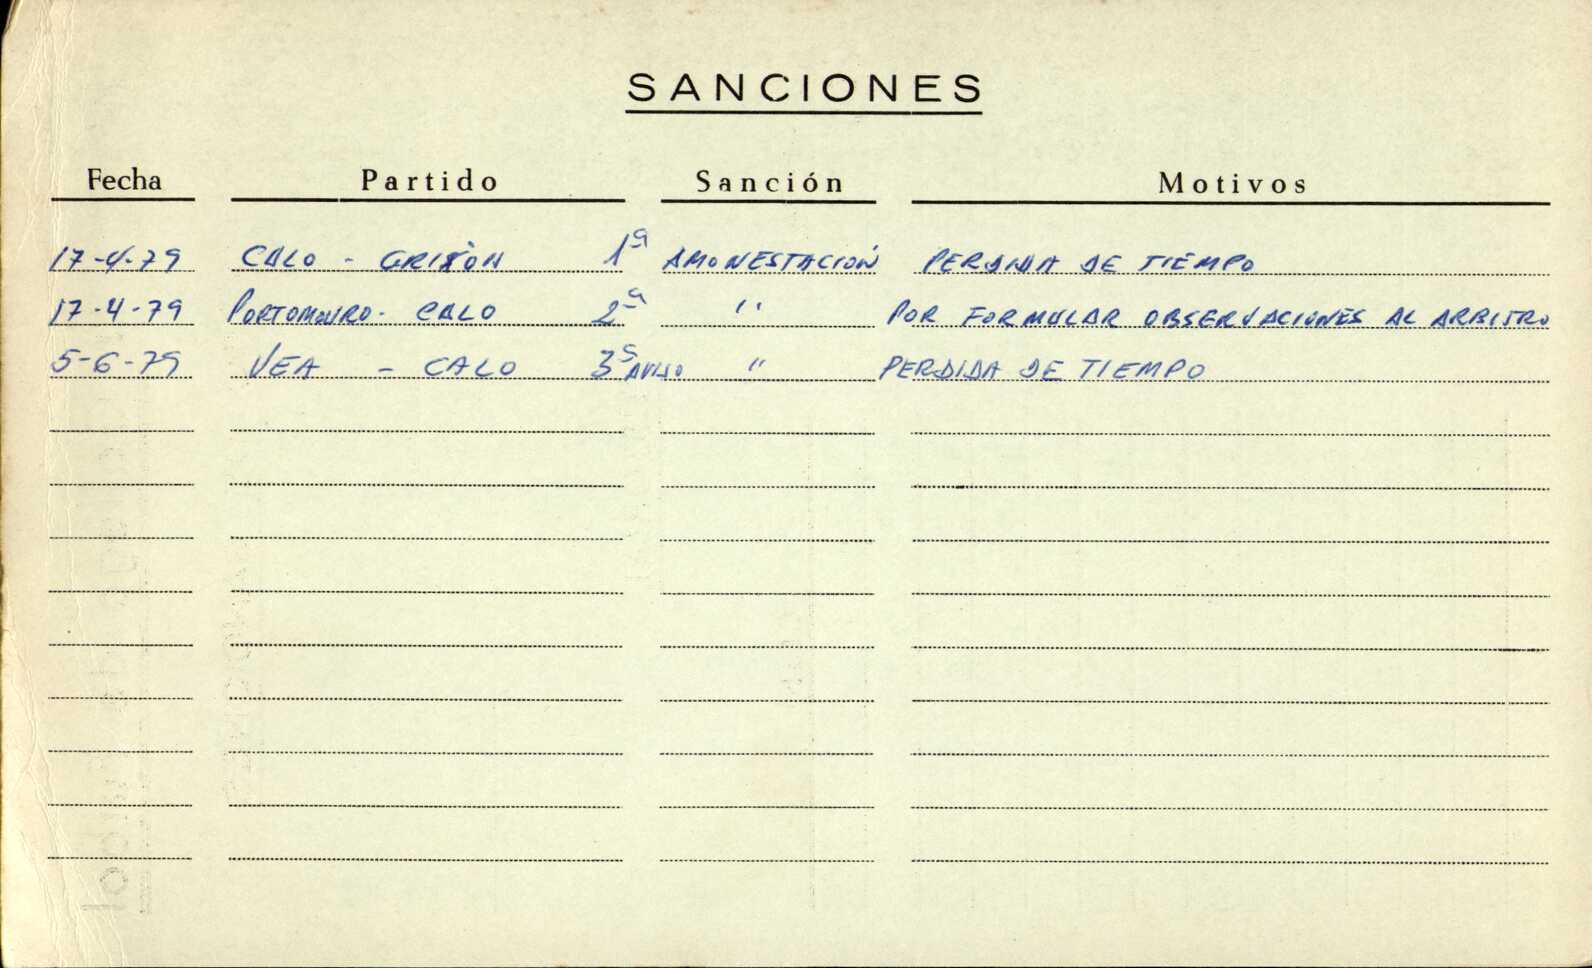 SANCIONES
Fecha Partido Sanción Motivos
17-4-79 CALO - GRIXOA 1ª AMONESTACION PERDIDA DE TIEMPO
17-4-79 PORTOMOURO - CALO 2ª " POR FORMULAR OBSERVACIONES AL ARBITRO
5-6-79 VEA - CALO 3ª AVISO " PERDIDA DE TIEMPO